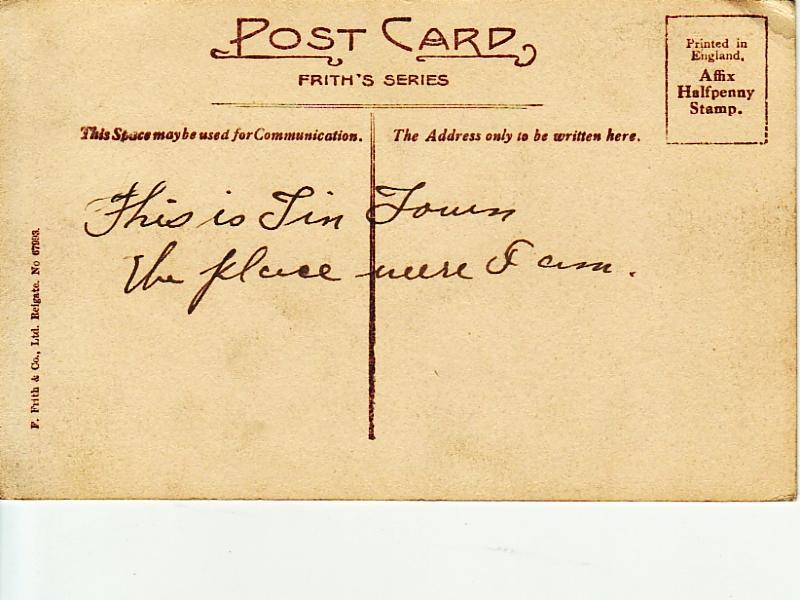 POST CARD
FRITH'S SERIES
Printed in
England.
Affix
Halfpenny
Stamp.
This Space may be used for Communication.
The Address only to be written here.
This is Tin Town
the place were I am.
F. Frith & Co., Ltd. Reigate. No 67993.